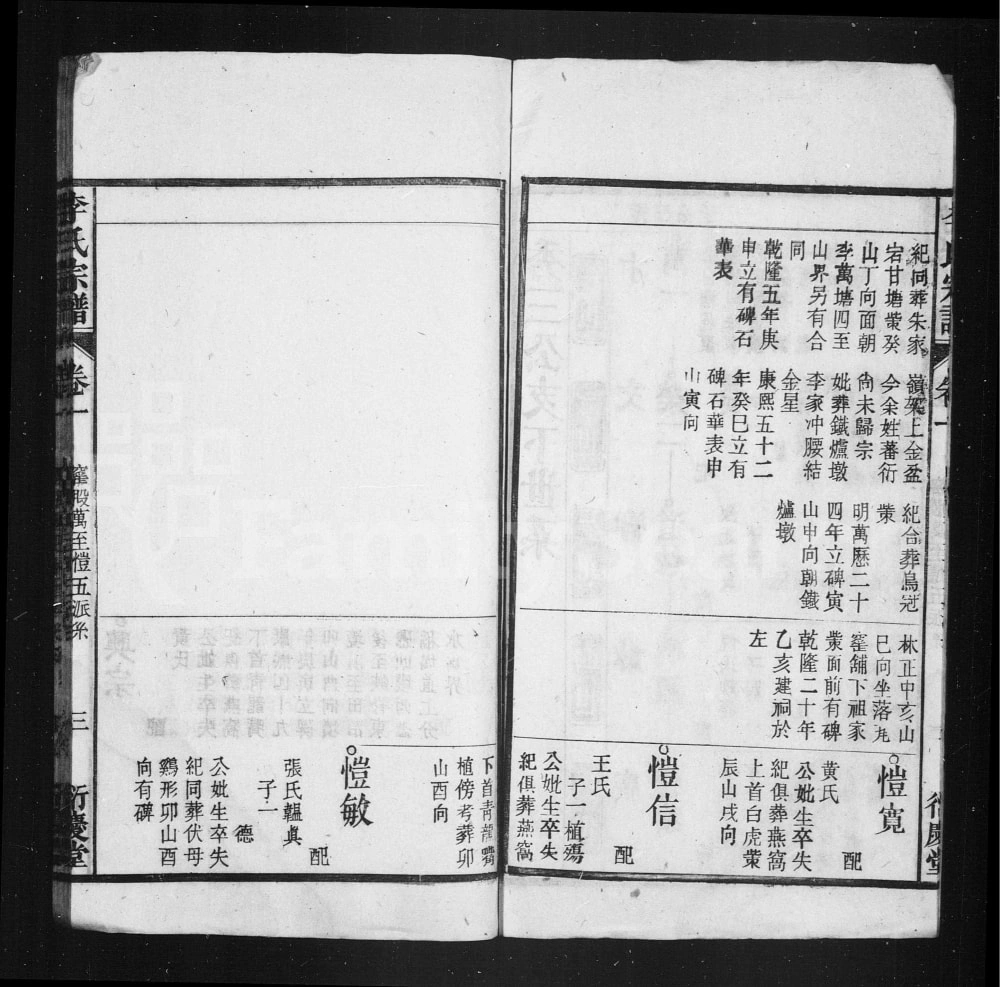 紀同葬朱家
宕甘塘塋癸
山丁向面朝
李萬塘四至
山界另有合
同
乾隆五年庚
申立有碑石
華表
嶺架上金盈
今余姓蕃衍
尚未歸宗
妣葬鐵爐墩
李家冲腰結
金星
康熙五十二
年癸巳立有
碑石華表申
山寅向
紀合葬烏冠
塋
明萬曆二十
四年立碑寅
山申向朝鐵
爐墩
林正中亥山
巳向坐落瓦
窰舖下祖家
塋面前有碑
乾隆二十年
乙亥建祠於
左
愷寬
配
黄氏
公妣生卒失
紀俱葬燕窩
上首白虎塋
辰山戌向
愷信
配
王氏
子一植殤
公妣生卒失
紀俱葬燕窩
下首青龍嘴
植傍考葬卯
山酉向
愷敏
配
張氏韞真
子一
德
公妣生卒失
紀同葬伏母
鷄形卯山酉
向有碑
李氏宗譜
卷一
窰股萬至愷五派系
三
衍慶堂